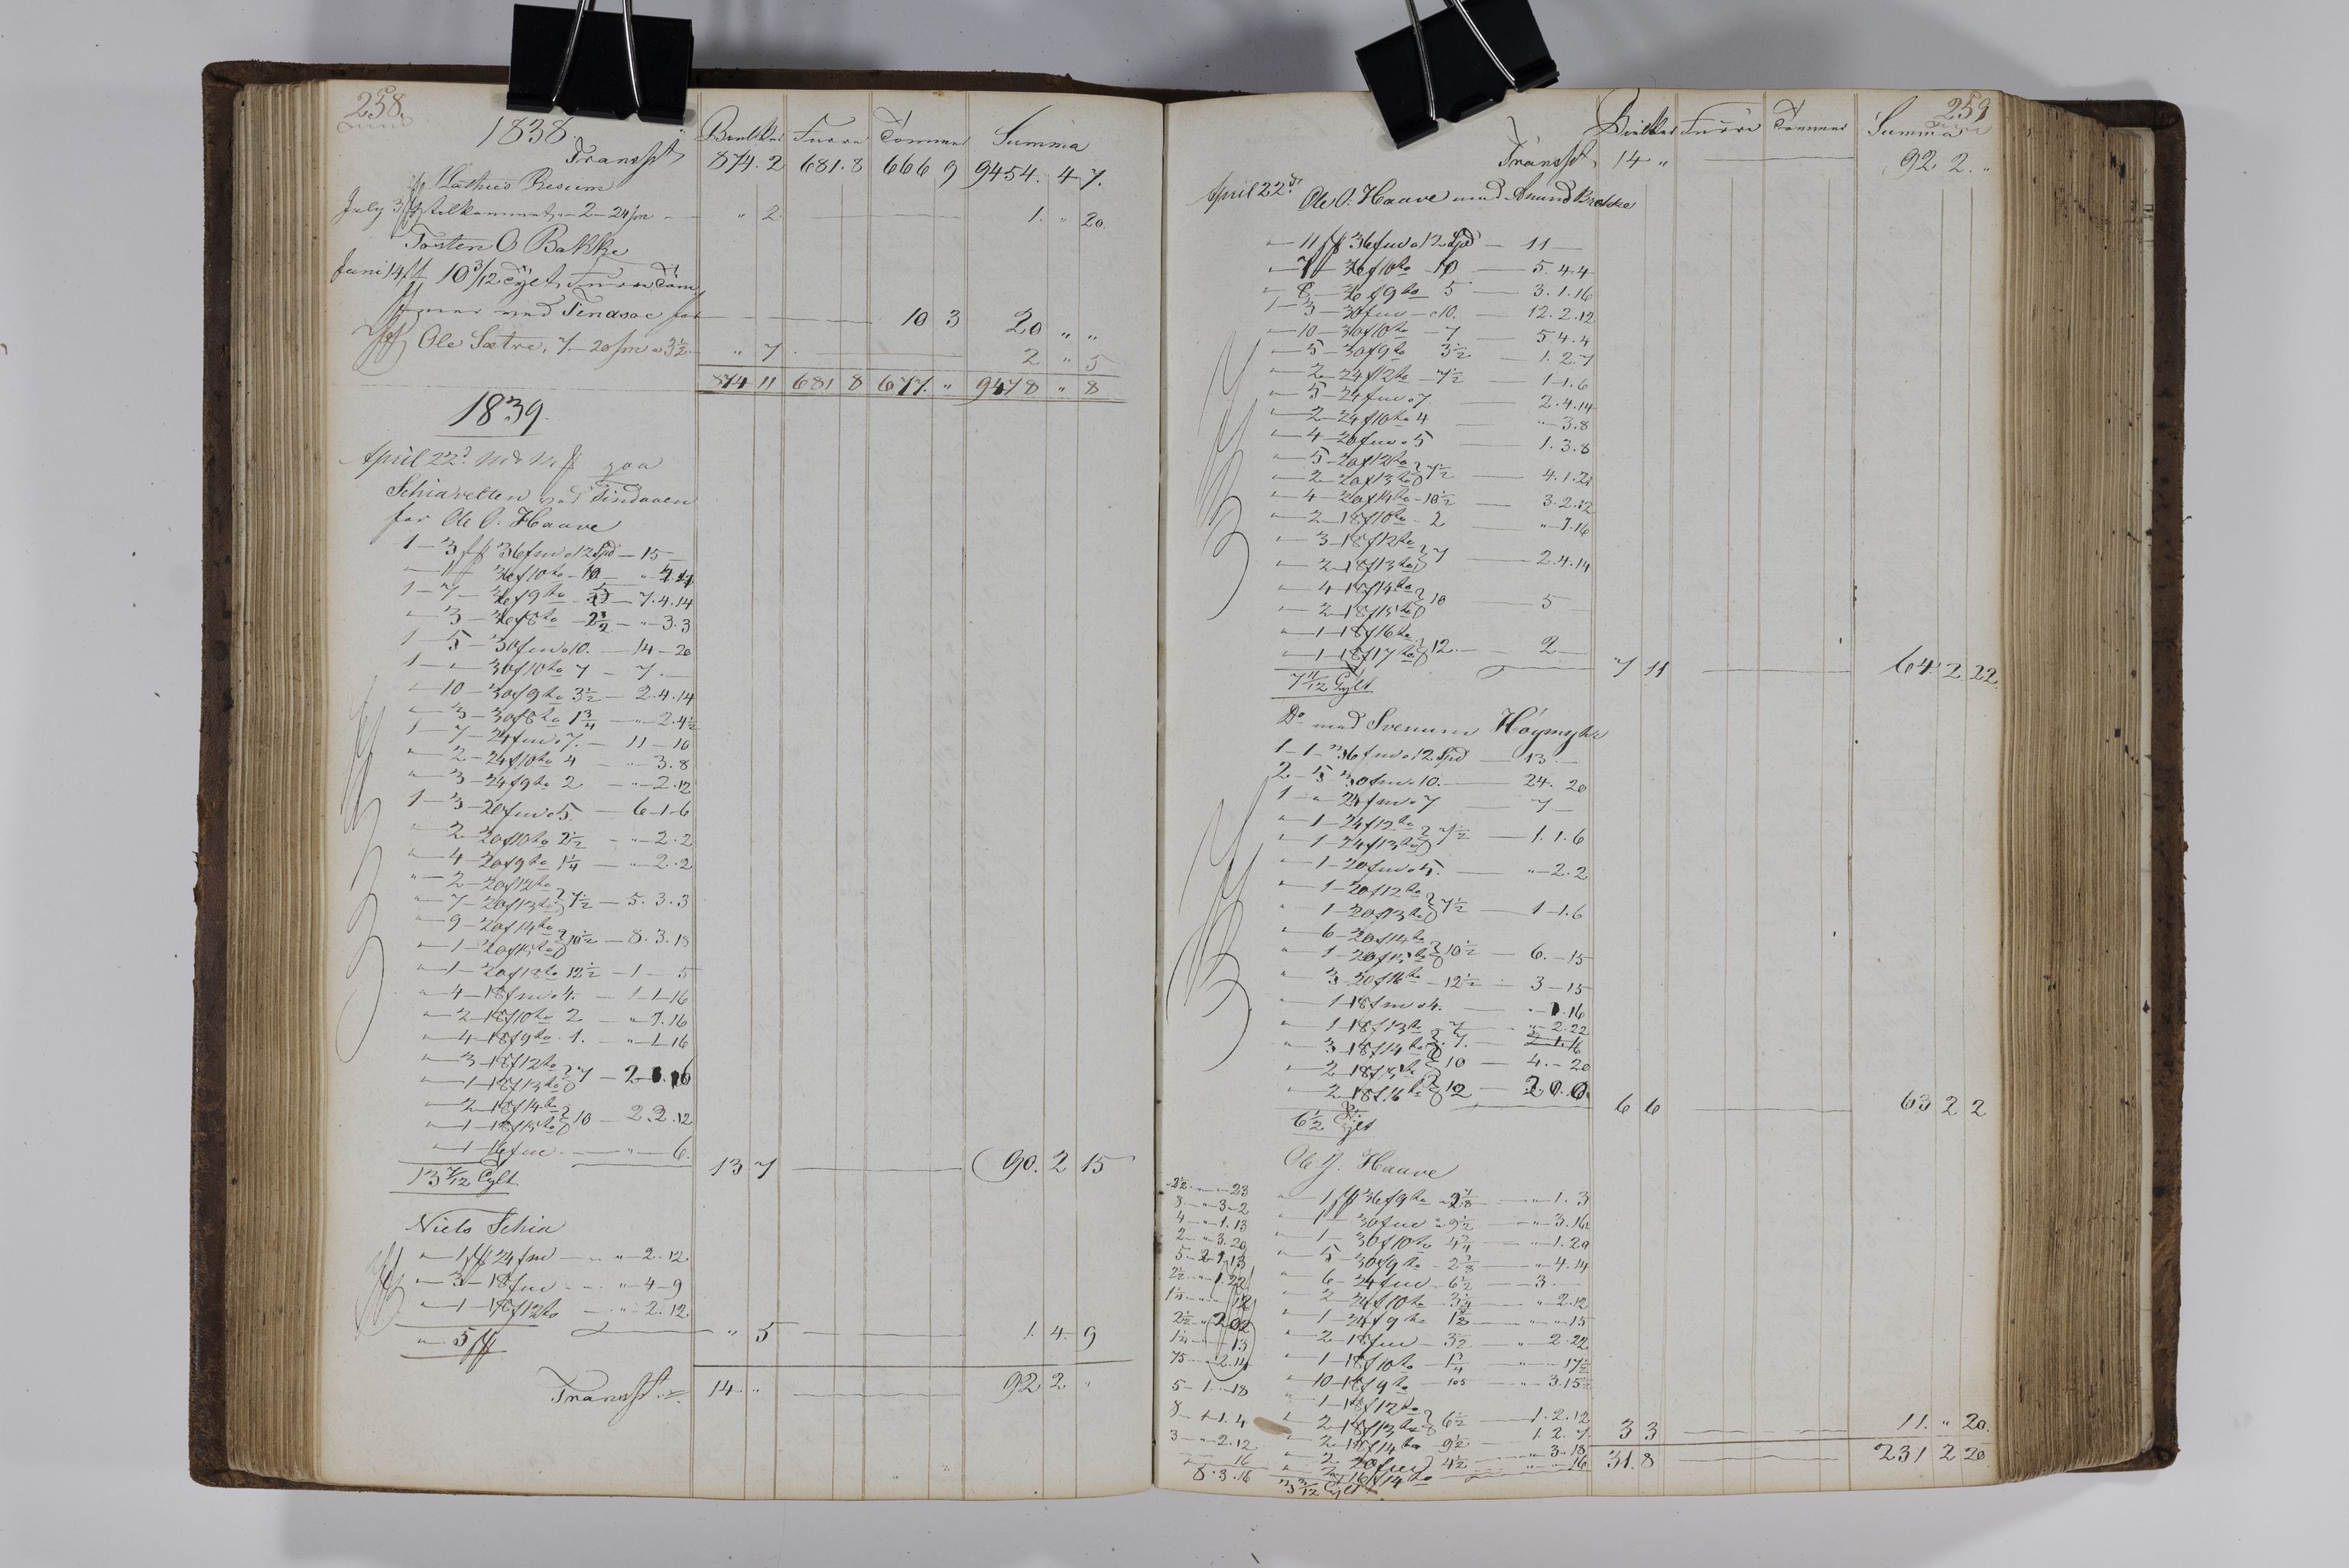 258.
1838. Bielker Furre Tømmer Summa
Transpt 874. 2 681. 8 666 9 9454. 4 7.
Mathies Besum
July 31 tilkommet, 2 – 24 fm " 2 1. " 20
Tosten O Bakke
Juni 14 10 3/12 Tylt, Furre Tøm
mer ved Tindsoe for 10 3 20 " "
Ole Sætre, 7 – 20 fm a 3½ " 7 2 " 5
874 11 681 8 677. " 9478 " 8
1839.
April 22d
Schiavelten ved Tindaaen
for Ole O. Haave
1 – 3 36 fm a 12 Spd – 15 –
" – 11 36 f 10 to – 10 – " 4.14
1 – 7 – 36 f 9 to – 5 – 7. 4. 14
" – 3 – 36 f 8 to – 2½ – " – 3. 3
1 – 5 – 30 fm a 10. – 14 – 20
1 – " – 30 f 10 to 7 – 7. –
" – 10 – 30 f 9 to 3½ – 2. 4. 14
" – 3 – 30 f 8 to 1¾ – " – 2. 4½
1 – 7 – 24 fm a 7. – 11 – 10
" – 2 – 24 f 10 to 4 – " – 3. 8
" – 3 – 24 f 9 to 2 – " – 2. 12
1 – 3 – 20 fm a 5. – 6 – 1 – 6
" – 2 – 20 f 10 to 2½ – " – 2. 2
" – 4 – 20 f 9 to 1¼ – " – 2. 2
" – 2 – 20 f 12 to
" – 7 – 20 f 13 to 7½ – 5. 3. 3
" – 9 – 20 f 14 to
" – 1 – 20 f 15 to 10½ – 8. 3. 18
" – 1 – 20 f 18 to 12½ – 1 – 5
" – 4 – 18 fm a 4. – 1 – 1 – 16
" – 2 – 18 f 10 to 2 – " – 1. 16
" – 4 – 18 f 9 to 1. – " – 1 – 16
" – 3 – 18 f 12 to
" – 1 – 18 f 13 to 7 – 2 – 1. 16
" – 2 – 18 f 14 to
" – 1 – 18 f 15 to 10 – 2. 2. 12
" – 1 16 fm – " – 6.
13 7/12 Tylt 13 7 90. 2 15
Niels Schia
" – 1 24 fm – " – 2. 12
" – 3 – 18 fm – " – 4 – 9
" – 1 – 18 f 12 to – " – 2. 12
" – 5 " 5 1. 4. 9
Transpt 14 " 92 2 "
259
Bielker Furre Tømmer Summa
Transpt 14 " 92 2. "
April 22d Ole O. Haave ved Amund Brække
" – 11 36 fm a 12 Spd – 11 –
" – 7 – 36 f 10 to – 10 – 5. 4. 4
" – 8 – 36 f 9 to 5 – 3. 1. 16
1 – 3 – 30 fm – a 10. – 12. 2. 12
" – 10 – 30 f 10 to – 7 – 5 4. 4
" – 5 – 30 f 9 to 3½ – 1. 2. 7
" – 2 – 24 f 12 to – 7½ – 1. 1. 6
" – 5 – 24 fm a 7. 2. 4. 14
" – 2 – 24 f 10 to 4 " – 3. 8
" – 4 – 20 fm a 5 1. 3. 8
" – 5 – 20 f 12 to
" – 2 – 20 f 13 to 7½ – 4. 1. 21
" – 4 – 20 f 14 to – 10½ – 3. 2. 12
" – 2 – 18 f 10 to – 2 " – 1. 16
" – 3 – 18 f 12 to
" – 2 – 18 f 13 to 7 – 2. 4. 14
" – 4 – 18 f 14 to
" – 2 – 18 f 15 to 10 – 5 –
" – 1 – 18 f 16 to
" – 1 – 18 f 17 to 12. – 2 –
7 11/12 Tylt 7 11 64. 2. 22
Do ved Svenum Höymyhr
1 – 1 – 36 fm a 12 Spd – 13 –
2 – 5 30 fm a 10. – 24. 20
1 – " – 24 fm a 7 – 7 –
" – 1 – 24 f 12 to
" – 1 – 24 f 13 to 7½ – 1. 1. 6
" – 1 – 20 fm a 5. – " – 2. 2
" – 1 – 20 f 12 to
" 1 – 20 f 13 to 7½ – 1 – 1. 6
" – 6 – 20 f 14 to
" 1 – 20 f 15 to 10½ – 6. – 15
" 3 – 20 f 16 to – 12½ – 3 – 15
" 1 – 18 fm a 4. – 1. 16
" 1 – 18 f 13 to 7 – " – 2. 22
" 3 – 18 f 14 to 7. – 2 – 1. 16
" – 2 – 18 f 15 to 10 – 4. – 20
" – 2 18 f 16 to 12 – 2. 0. 0
6½ Tylt 6 6 63 2 2
Ole J. Haave
2½ – " – 23 " – 1 36 f 9 to – 2⅞ – " – 1. 3
8. – " – 3 – 2 " – 1 – 30 fm a 9½ – " – 3. 16
4 – " – 1. 13 " – 1 – 30 f 10 to 4¾ – " – 1. 20
2 – " – 3. 20 " – 5 – 30 f 9 to – 2⅜ – " – 4. 14
5 – 2 – 1. 13 " – 6 – 24 fm – 6½ – 3. –
2½ – " – 1. 22 " – 2 – 24 f 10 to – 3¼ – " – 2. 12
" – 1 – 24 f 9 to – " – 15
" – 2 – 18 fm – 3½ – " – 2. 22
" – 1 – 18 f 10 to – 1¾ – " – 17½
5 – 1. – 18 " – 10 – 18 f 9 to – 105 – " – 3. 15½
" – 1 – 18 f 12 to
8 – 1 – 1. 4 " – 2 – 18 f 13 to 6½ – 1. 2. 12
3 – " – 2. 12 " – 2 – 18 f 14 to – 9½ – 1. 2. 7 3 3 11. " 20.
16 " – 2 20 fm 4½ – " – 3. 18
8. 3. 16 16 f 14 to " – 16 31. 8 231 2 20
3 3/12 Tylt